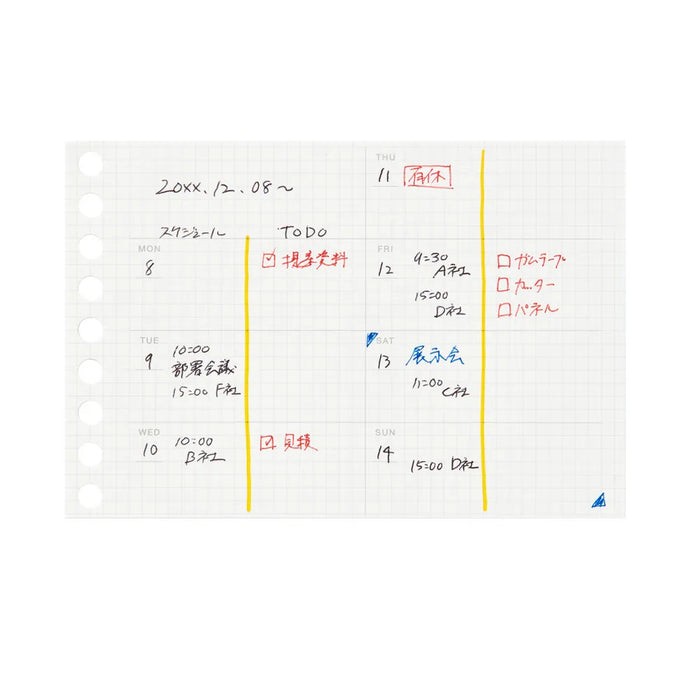 20XX.12.08〜
スケジュール
TODO
MON
8
☑ 提案資料
TUE
9
10:00
部署会議
15:00 F社
WED
10
10:00
B社
☑ 見積
THU
11
有休
FRI
12
9:30
A社
15:00
D社
☐ ガムテープ
☐ カッター
☐ パネル
SAT
13
展示会
11:00
C社
SUN
14
15:00 D社